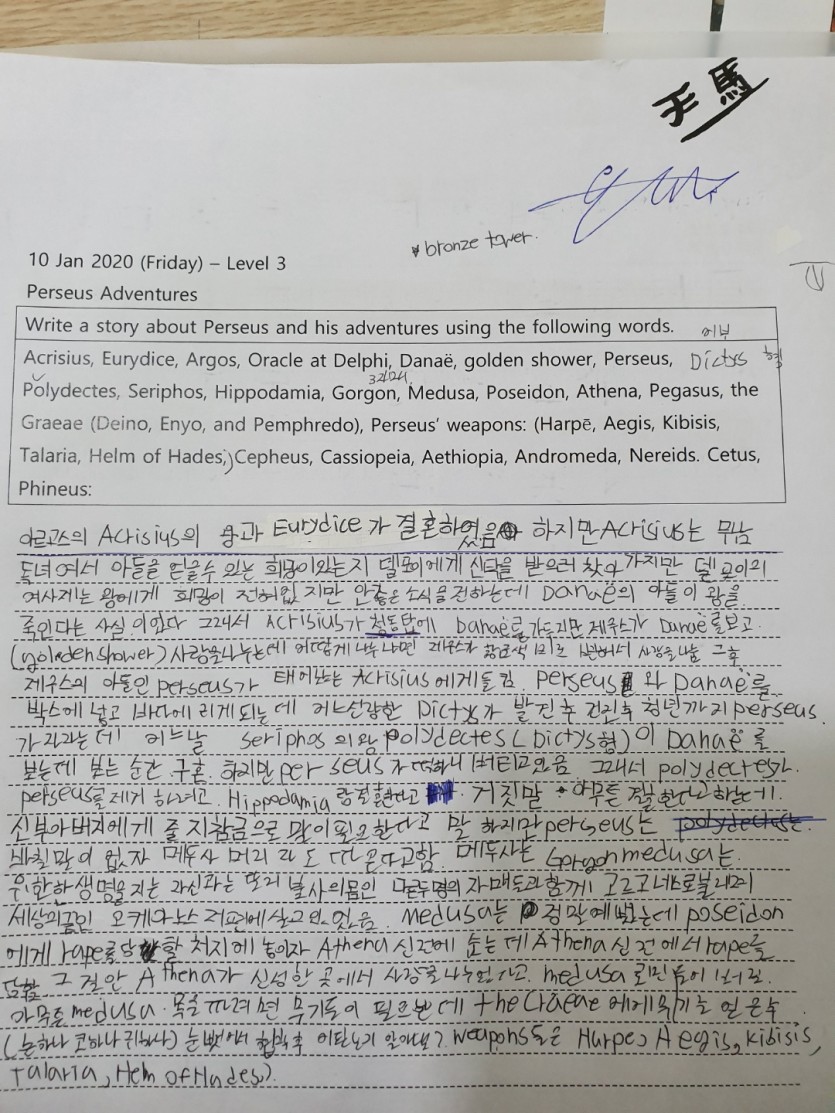 天馬
bronze tower.
10 Jan 2020 (Friday) – Level 3
Perseus Adventures
Write a story about Perseus and his adventures using the following words. 어부
Acrisius, Eurydice, Argos, Oracle at Delphi, Danaë, golden shower, Perseus, Dictys 형
Polydectes, Seriphos, Hippodamia, Gorgon, Medusa, Poseidon, Athena, Pegasus, the
Graeae (Deino, Enyo, and Pemphredo), Perseus’ weapons: (Harpē, Aegis, Kibisis,
Talaria, Helm of Hades,) Cepheus, Cassiopeia, Aethiopia, Andromeda, Nereids. Cetus,
Phineus:
아르고스의 Acrisius의 왕과 Eurydice가 결혼하였음 하지만 Acrisius는 무남
독녀여서 아들을 얻을수 있는 희망이있는지 델포이에게 신탁을 받으러 찾아 가지만 델포이의
여사제는 왕에게 희망이 전혀없지만 안좋은 소식을 전하는데 Danaë의 아들이 왕을
죽인다는 사실이었다 그래서 Acrisius가 청동탑에 Danaë를 가두지만 제우스가 Danaë를보고
(golden shower) 사랑을나누는데 어떻게 나누냐면 제우스가 황금색 비로 변해서 사랑을 나눔 그후
제우스의 아들인 perseus가 태어나는 Acrisius에게들킴. perseus와 Danaë를
박스에 넣고 바다에 버리게 되는데 어느선량한 Dictys가 발견후 건진후 청년까지 perseus
가 자라는데 어느날 seriphos의왕 polydectes (Dictys형)이 Danaë를
보는데 보는 순간 구혼. 하지만 perseus가 떡하니 버티고있음 그래서 polydectes가
perseus를 제거 하려고 Hippodamia 랑 결혼한다고 거짓말 아무튼 결혼한다고 하는데
신부아버지에게 줄 지참금으로 말이 필요한다고 말 하지만 perseus는
바칠말이 없자 메두사 머리 라도 따온다고함. 메두사는 Gorgon medusa는.
유한한 생명을 지는 자신과는 달리 불사의몸인 다른두명의 자매들과 함께 고르고네스로불리며
세상의끝인 오케아노스 저편에살고 있었음. medusa는 정말예뻤는데 poseidon
에게 rape를 당할 처지에 놓이자 Athena 신전에 숨는데 Athena 신전에서 rape를
당함 그걸안 Athena가 신성한 곳에서 사랑을 나누었다고. medusa
아무튼 medusa 목을 따려면 무기들이 필요한데 the Graeae에게 무기를 얻은후
(눈하나 코하나 귀하나) 눈뺏어서 협박후 어딨는지 알아내고 weapons들은 Harpe, Aegis, Kibisis,
Talaria, Helm of Hades).